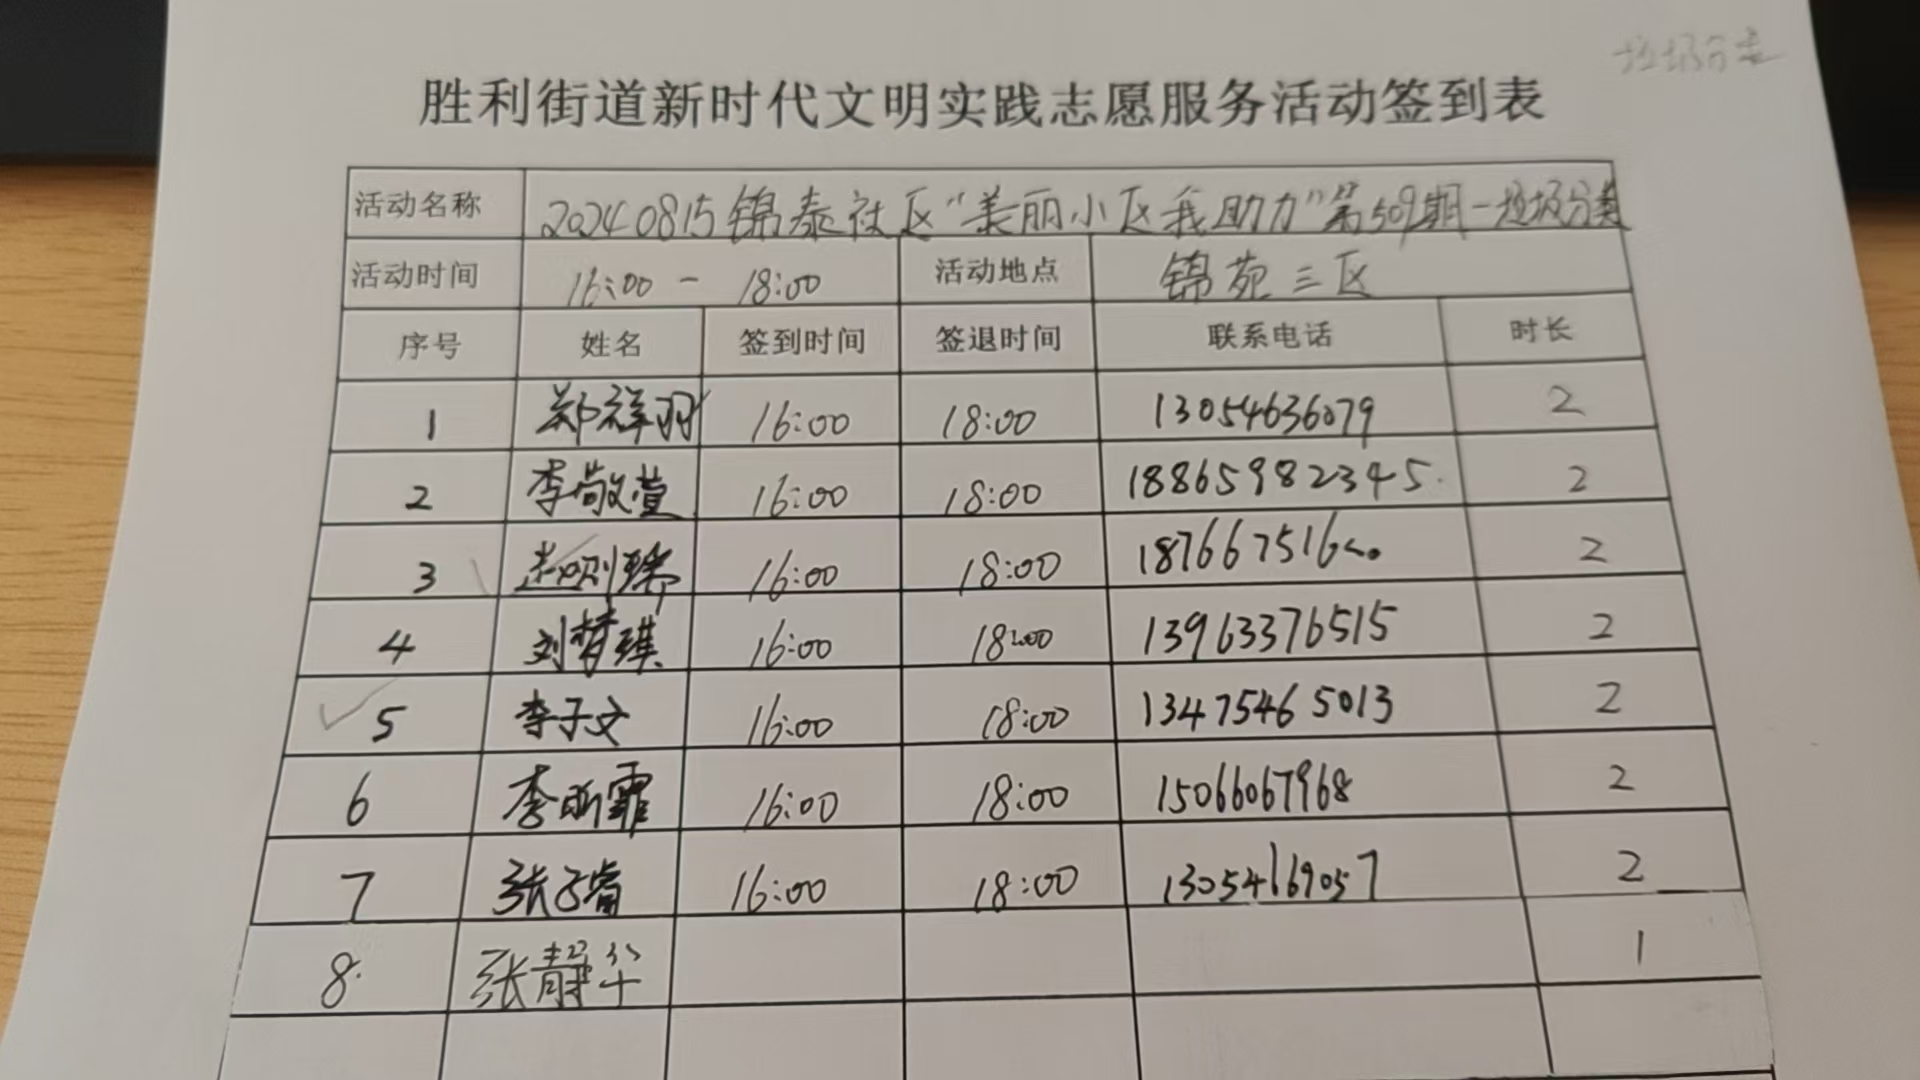 垃圾分类
胜利街道新时代文明实践志愿服务活动签到表
活动名称 20240815锦泰社区“美丽小区我助力”第509期-垃圾分类
活动时间 16:00 - 18:00 活动地点 锦苑三区
序号 姓名 签到时间 签退时间 联系电话 时长
1 郑祥羽 16:00 18:00 13054636079 2
2 李敬萱 16:00 18:00 18865982345. 2
3 16:00 18:00 2
4 刘梦琪 16:00 18:00 13963376515 2
5 李子文 16:00 18:00 13475465013 2
6 李昕霏 16:00 18:00 15066067968 2
7 张子睿 16:00 18:00 13054169057 2
8. 张静华 1